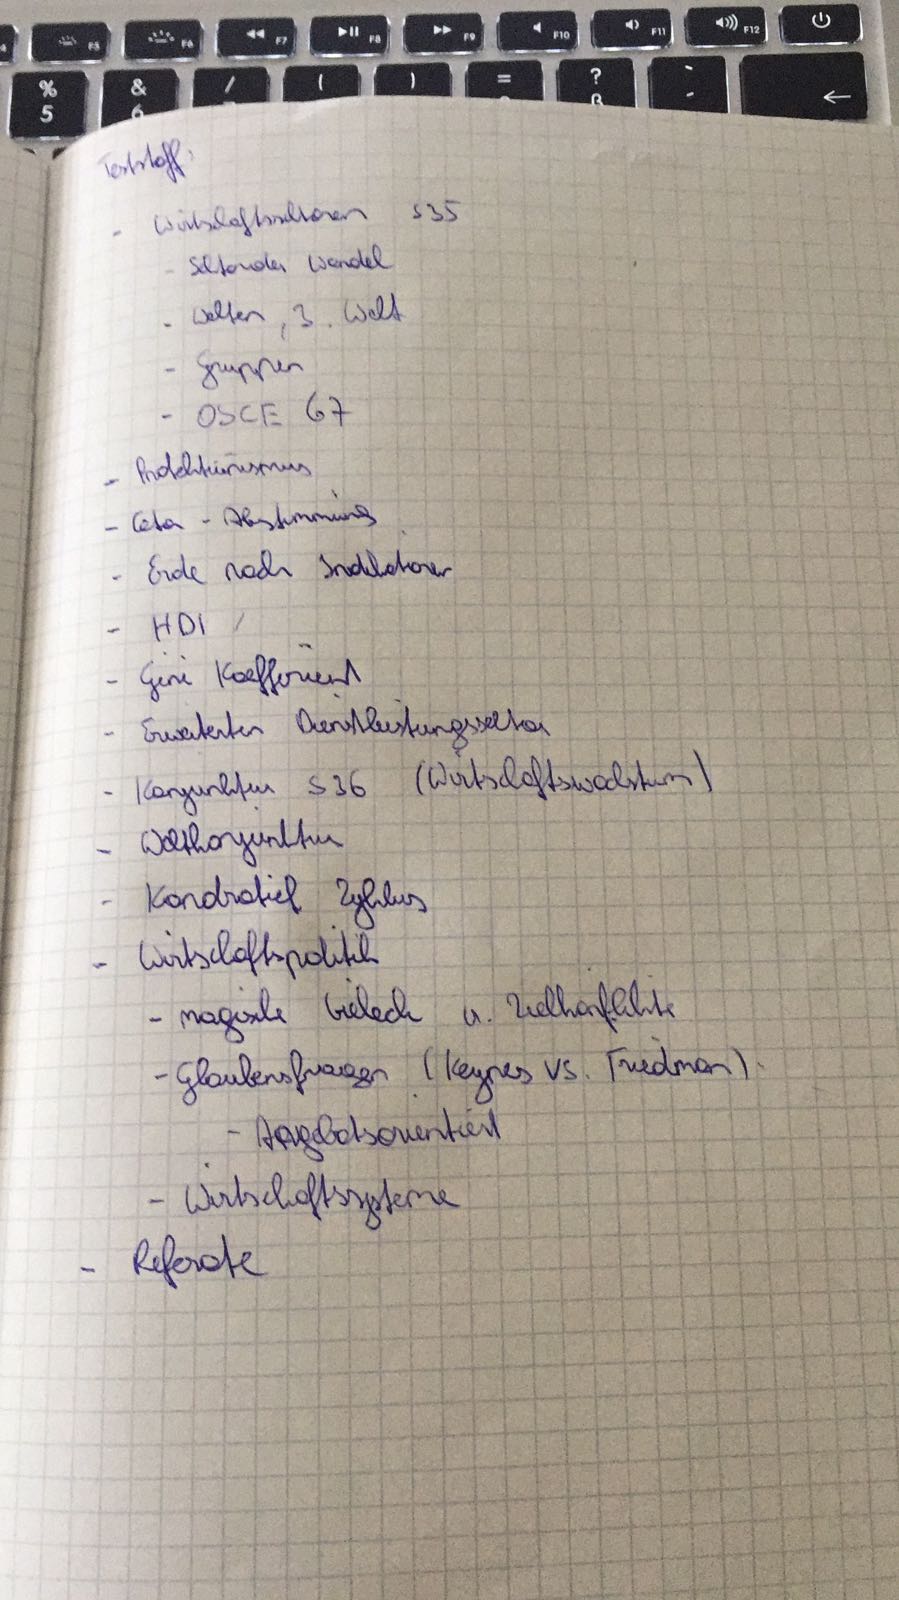 F5 F6 F7 F8 F9 F10 F11 F12
% & / ( ) = ? `
5 6 ß ←
Teststoff:
- Wirtschaftssektoren S35
- Sektoraler Wandel
- Welten, 3. Welt
- Gruppen
- OSCE G7
- Protektionismus
- Ceta - Abstimmung
- Erde nach Indikatoren
- HDI
- Gini Koeffizient
- Erweiterter Dienstleistungssektor
- Konjunktur S36 (Wirtschaftswachstum)
- Weltkonjunktur
- Kondratief Zyklus
- Wirtschaftspolitik
- magische Vieleck u. Zielkonflikte
- Glaubensfragen (Keynes vs. Friedman)
- Angebotsorientiert
- Wirtschaftssysteme
- Referate